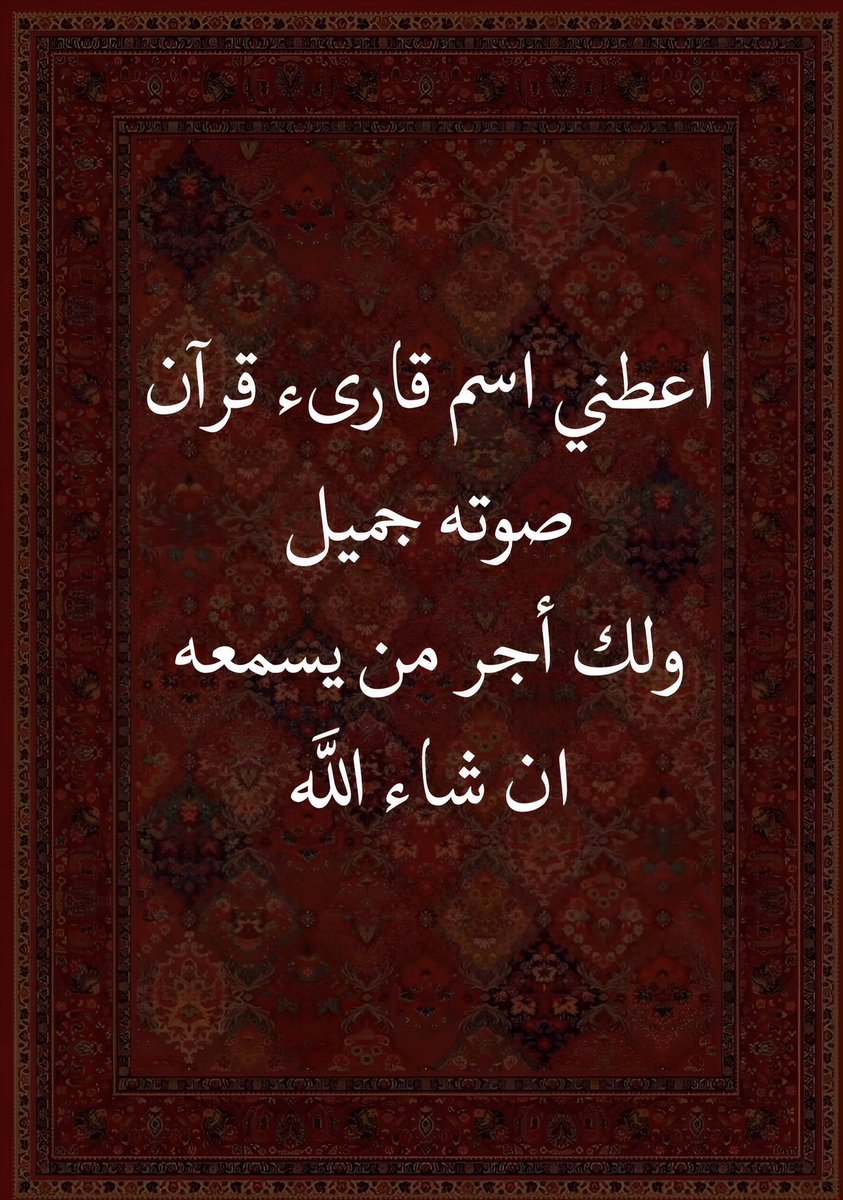 اعطني اسم قارىء قرآن
صوته جميل
ولك أجر من يسمعه
ان شاء اللَّه